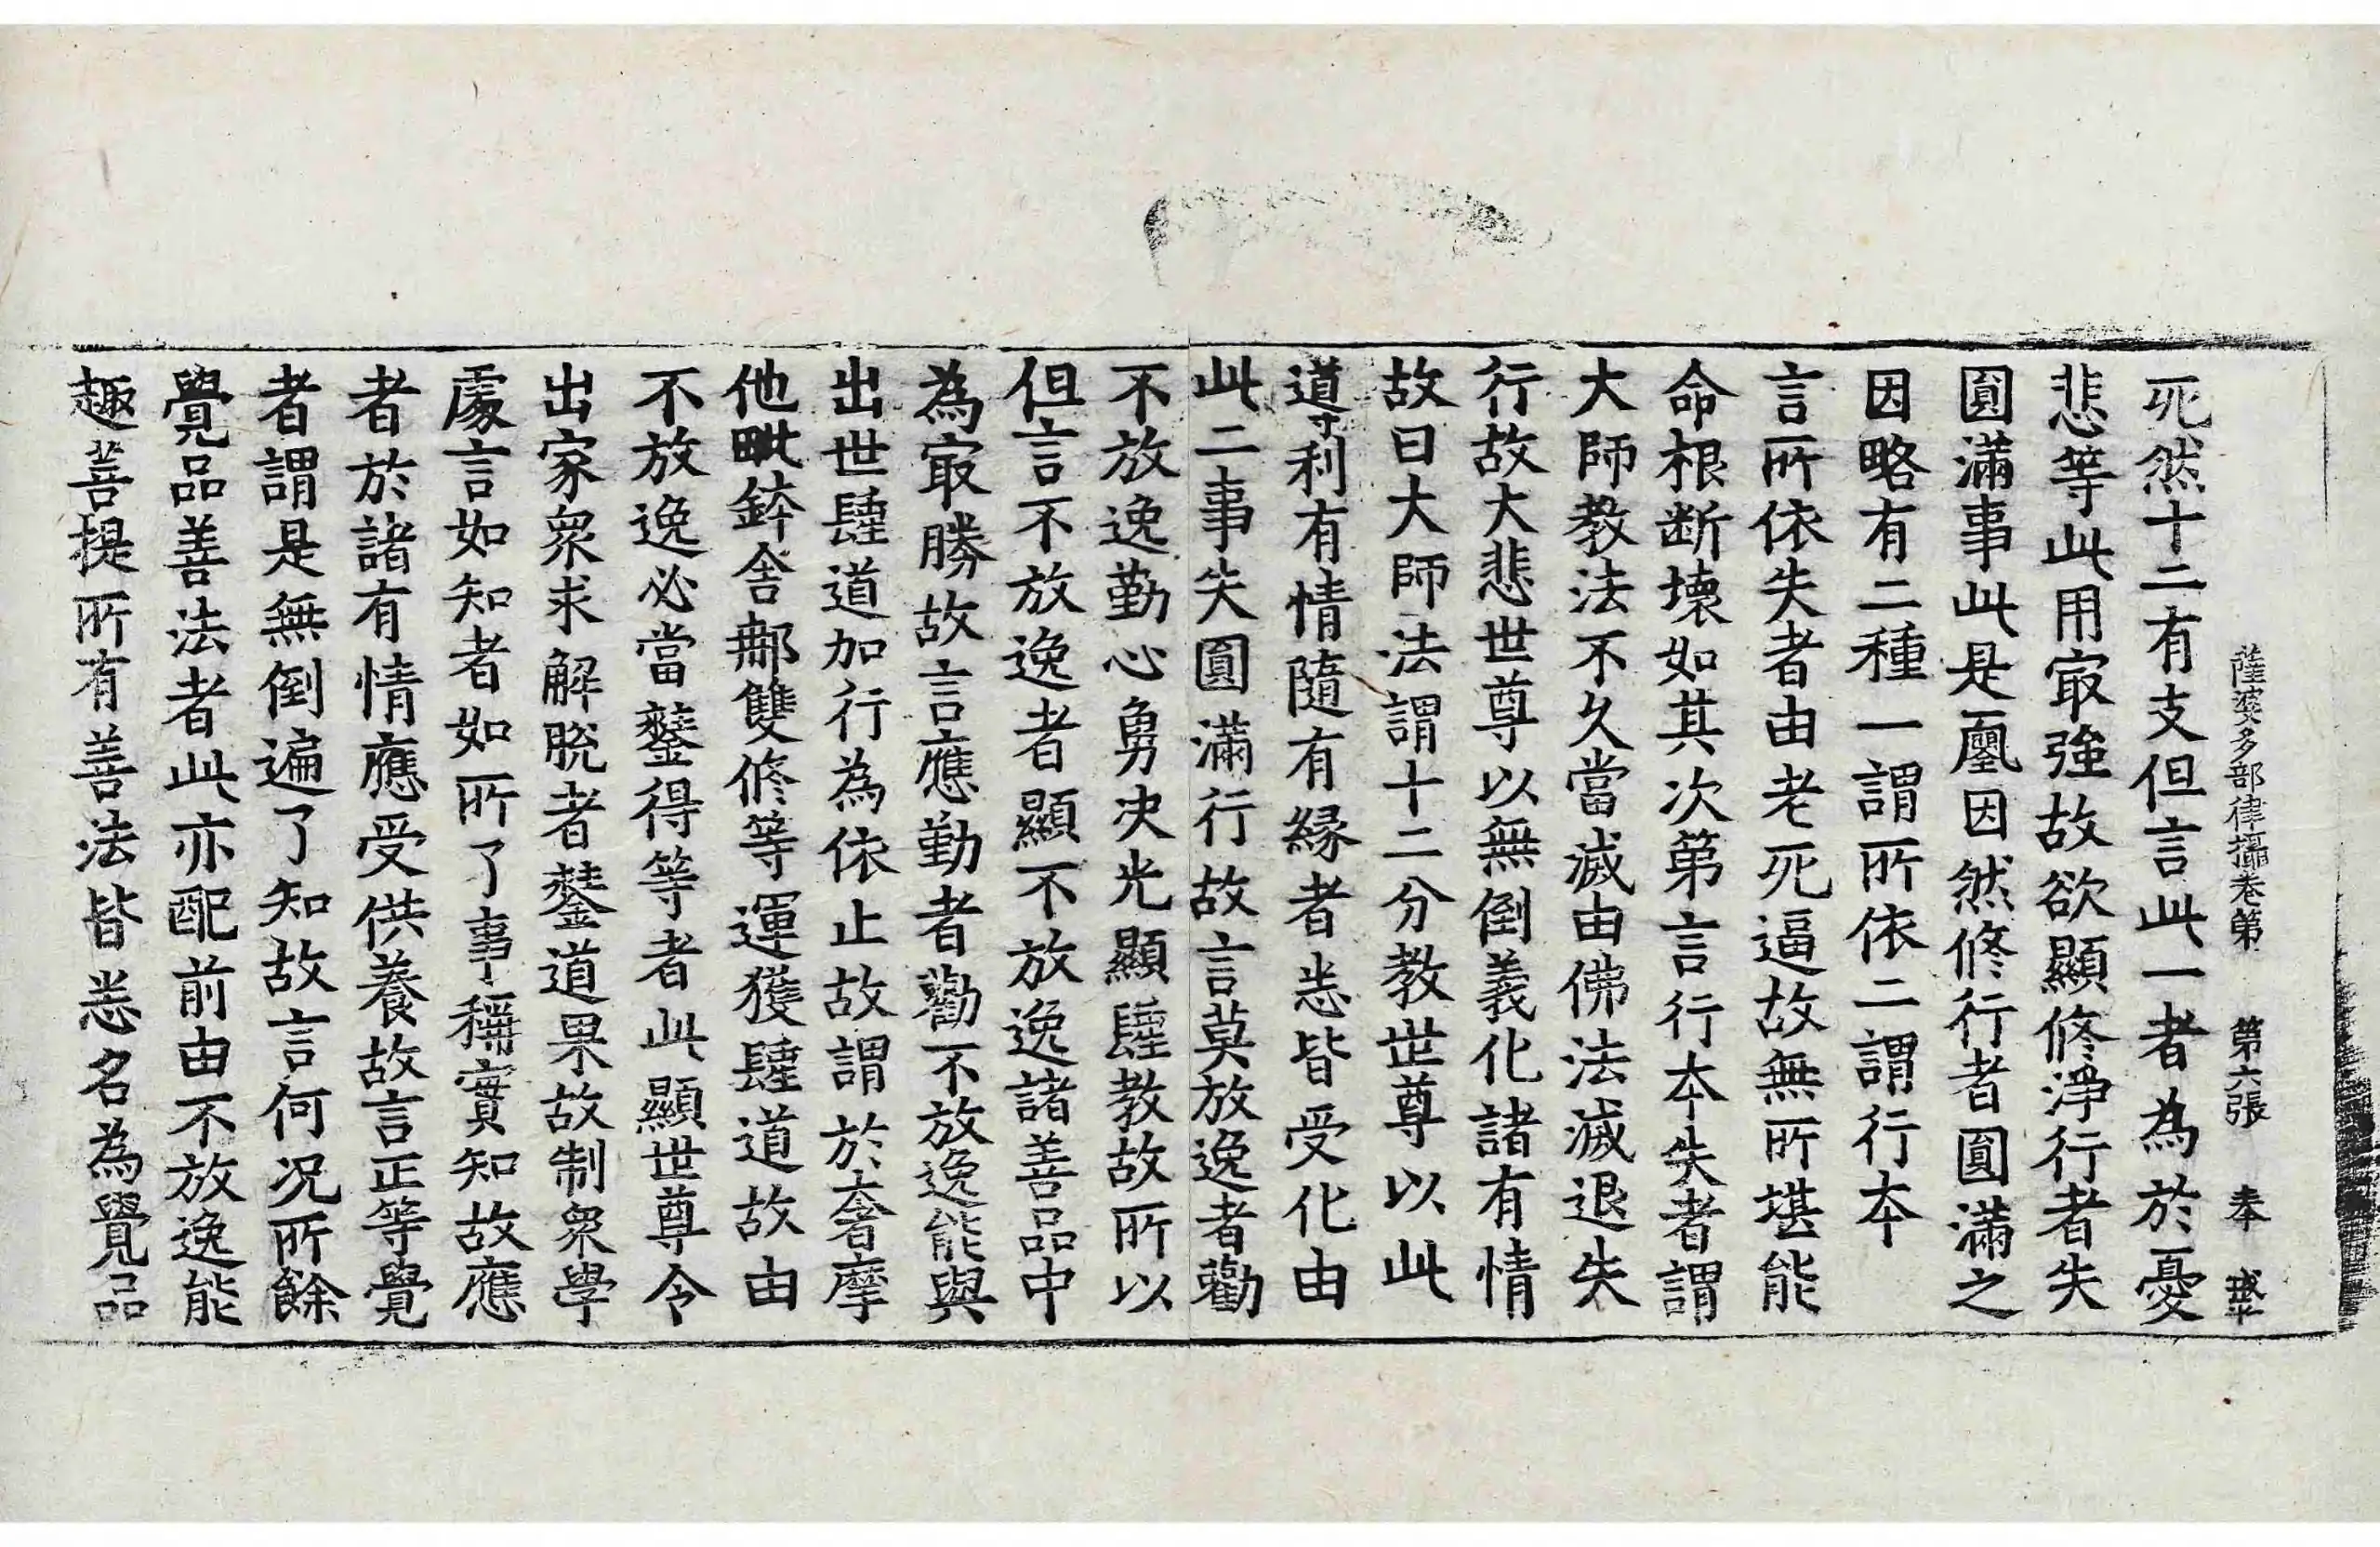 薩婆多部律攝卷第　第六張　奉
死然十二有支但言此一者為於憂
悲等此用㝡強故欲顯修淨行者失
圓滿事此是因然修行者圓滿之
因略有二種一謂所依二謂行本
言所依失者由老死逼故無所堪能
命根斷壞如其次第言行本失者謂
大師教法不久當滅由佛法滅退失
行故大悲世尊以無倒義化諸有情
故曰大師法謂十二分教世尊以此
導利有情隨有緣者悉皆受化由
此二事失圓滿行故言莫放逸者勸
不放逸勤心勇決光顯𨲢教故所以
但言不放逸者顯不放逸諸善品中
為㝡勝故言應勤者勸不放逸能與
出世𨲢道加行為依止故謂於奢摩
他毗鉢舍那雙修等運獲𨲢道故由
不放逸必當𨭻得等者此顯世尊令
出家眾求解脫者𨭻道果故制眾學
處言如知者如所了事稱實知故應
者於諸有情應受供養故言正等覺
者謂是無倒遍了知故言何況所餘
覺品善法者此亦配前由不放逸能
趣菩提所有善法皆悉名為覺品